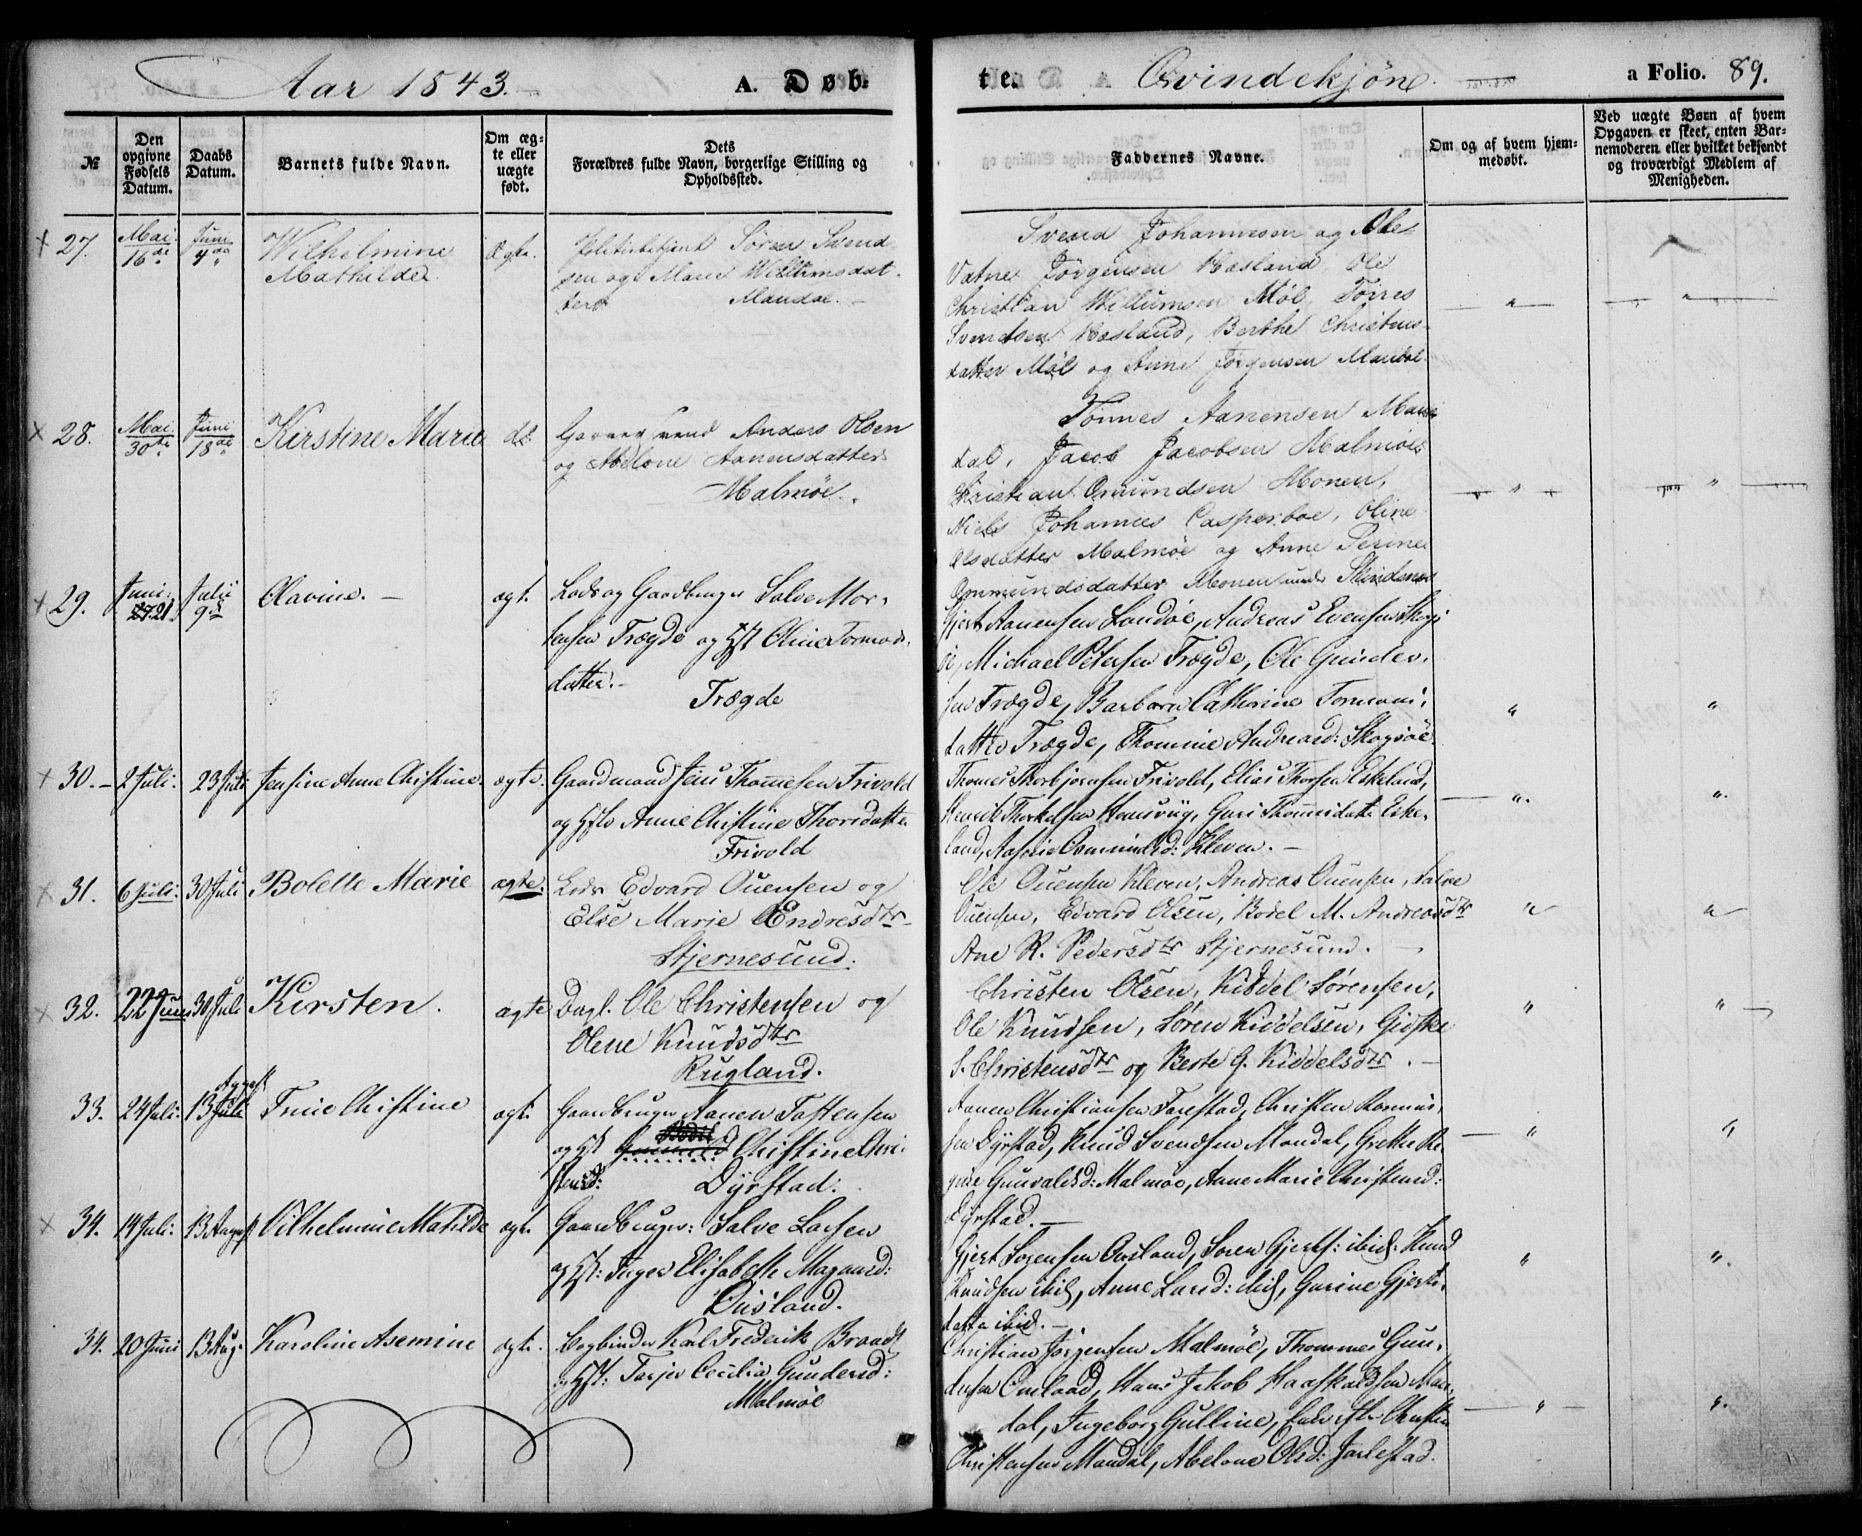 Aar 1843. A. Døb-
te. Qvindekjøn a Folio. 89.
№
Den opgivne Fødsels Datum.
Daabs Datum.
Barnets fulde Navn.
Om ægte eller uægte født.
Dets
Forældres fulde Navn, borgerlige Stilling og
Opholdssted.
Faddernes Navne.
Om og af hvem hjem-
medøbt.
Ved uægte Børn af hvem
Opgaven er skeet, enten Bar-
nemoderen eller hvilket bekjendt
og troværdigt Medlem af
Menigheden.
27. Mai 16de Juni 4de Wilhelmine Mathilde Ægte. Søren Svend
sen og Marie Willumsdat-
ter Mandal.
Svend Johannesen og Ole
Vatne Jørgensen Hæsland, Ole
Christian Willumsen Møl, Tørres
Svendsen Hæsland, Berthe Christens
datter Møl og Anne Jørgensen Mandal
28. Mai 30te Juni 18de Kirstine Marie do Anders Olsen
og Abelone Aanensdatter
Malmøe.
Tønnes Aanensen Man
dal, Jacob Jacobsen Malmøe
Christian Omundsen Monen,
Niels Johannes Casperboe, Oline
Olsdatter Malmøe og Anne Serine
Ommundsdatter Monen
29. Juni 21. Julii 9de Olavine. — ægt. Lods og Gaardbruger Salve Mor-
tensen Trægde og Hst Oline Tormods-
datter. — Trægde
Gjert Aanensen Landøe, Andreas Evensen Skogs
ø, Michael Petersen Trægde, Ole Gunder-
sen Trægde, Barbara Cathrine Tormods-
datter Trægde, Thomine Andreasd: Skogsøe
30. — 2 Juli: 23 Juli Jensine Anne Christine. ægte. Gaardmand Jens Thomesen Frivold
og Hst Anne Christine Thorsdatter
Frivold
Thomes Thorbjørnsen Frivold, Elias Thorsen Eskeland,
Henrik Thorkelsen Homsvig, Guri Thomesdatter Eske-
land, Omundsd: Kleven. —
31. 6 Juli: 30 Juli Bolette Marie ægte. Lods Edvard Ouensen og
Else Marie Endresdtr
Stjernesund.
Ole Ouensen Kleven, Andreas Ouensen, Salve
Ouensen, Edvard Olsen, Bodel M. Andreasdtr
Ane R. Pedersdtr Stjernesund. —
32. 22 Juni 30 Juli Kirsten. ægte Dagl. Ole Christensen og
Olene Knudsdtr
Rugland.
Christen Olsen, Kiddel Sørensen,
Ole Knudsen, Søren Kiddelsen, Gidske
S. Christensdtr og Berte G. Kiddelsdtr. —
33. 24 Juli: 13 August Trine Christine ægt. Gaardbruger Aanen Tostensen
og Hst Christine Chri-
stensd: Dyrstad:
Aanen Christiansen Farestad, Christen Rasmus-
sen Dyrstad, Knud Svendsen Mandal, Grethe Re
gine Gunvaldsd: Malmøe, Anne Marie Christensd:
Dyrstad. —
34. 14 Juli: 13 August Vilhelmine Matilde ægt. Gaardbruger: Salve Larsen
og Hst: Inger Elisabeth
Ousland.
Gjert Sørensen Ousland, Søren Gjerts: ibid: Knud
Knudsen ibid, Anne Larsd: ibid, Gurine Gjerts-
datter ibid. —
34. 20 Juni 13 Aug. Karoline Asemine ægt. Bogbinder Karl Frederik Brandt
og Hst: Tarjer Cecilia Gundersd:
Malmøe
Christian Jørgensen Malmøe, Thommes Gun-
dersen Omland, Hans Jakob Haaskaldsen Man-
dal, Ingeborg Gulline,
Christensen Mandal, Abelone Olsd: Jarlestad.